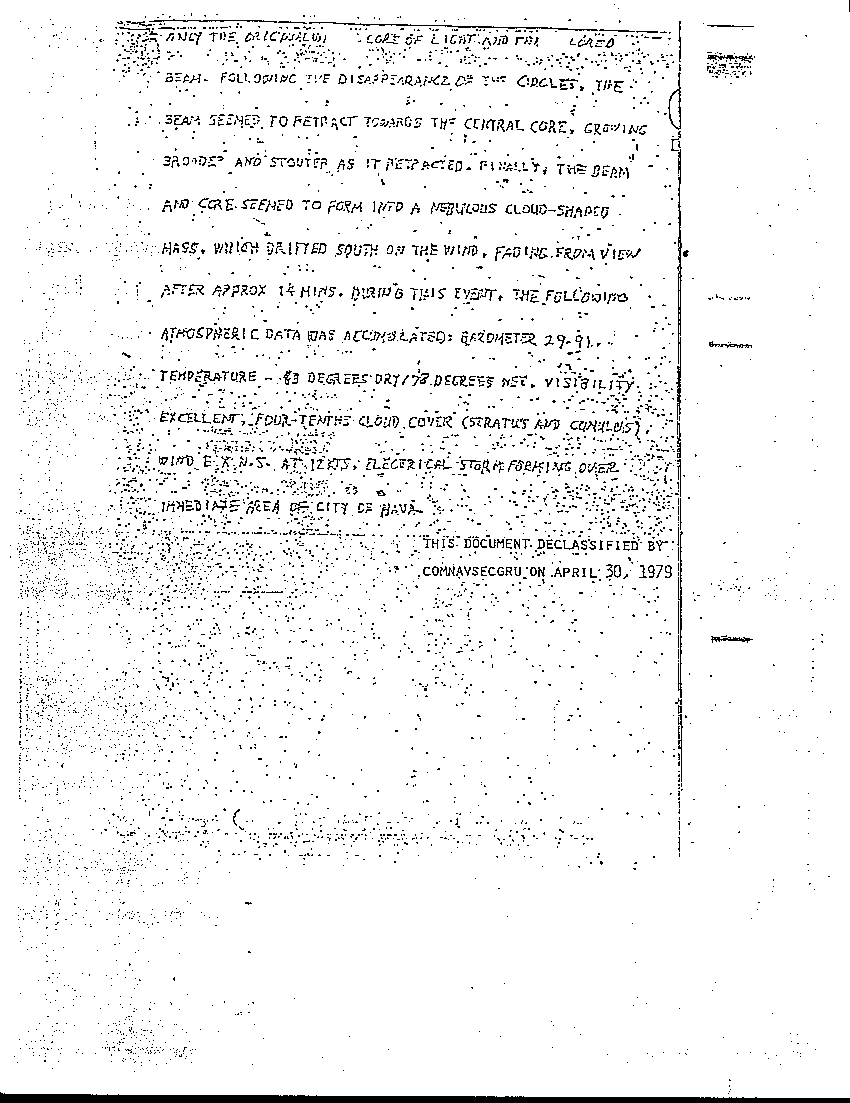 ONLY THE ORIGINAL CORE OF LIGHT AND THE
BEAM. FOLLOWING THE DISAPPEARANCE OF THE CIRCLES, THE
BEAM SEEMED TO RETRACT TOWARDS THE CENTRAL CORE, GROWING
BROADER AND STOUTER AS IT RETRACTED. FINALLY, THE BEAM
AND CORE SEEMED TO FORM INTO A NEBULOUS CLOUD-SHAPED
MASS, WHICH DRIFTED SOUTH ON THE WIND, FADING FROM VIEW
AFTER APPROX 14 MINS. DURING THIS EVENT, THE FOLLOWING
ATMOSPHERIC DATA WAS ACCUMULATED: BAROMETER 29.91,
TEMPERATURE - 83 DEGREES DRY/78 DEGREES WET, VISIBILITY
EXCELLENT, FOUR-TENTHS CLOUD COVER (STRATUS AND CUMULUS),
WIND AT 12KTS, ELECTRICAL STORM FORMING OVER
IMMEDIATE AREA OF CITY OF
THIS DOCUMENT DECLASSIFIED BY
COMNAVSECGRU ON APRIL 30, 1979